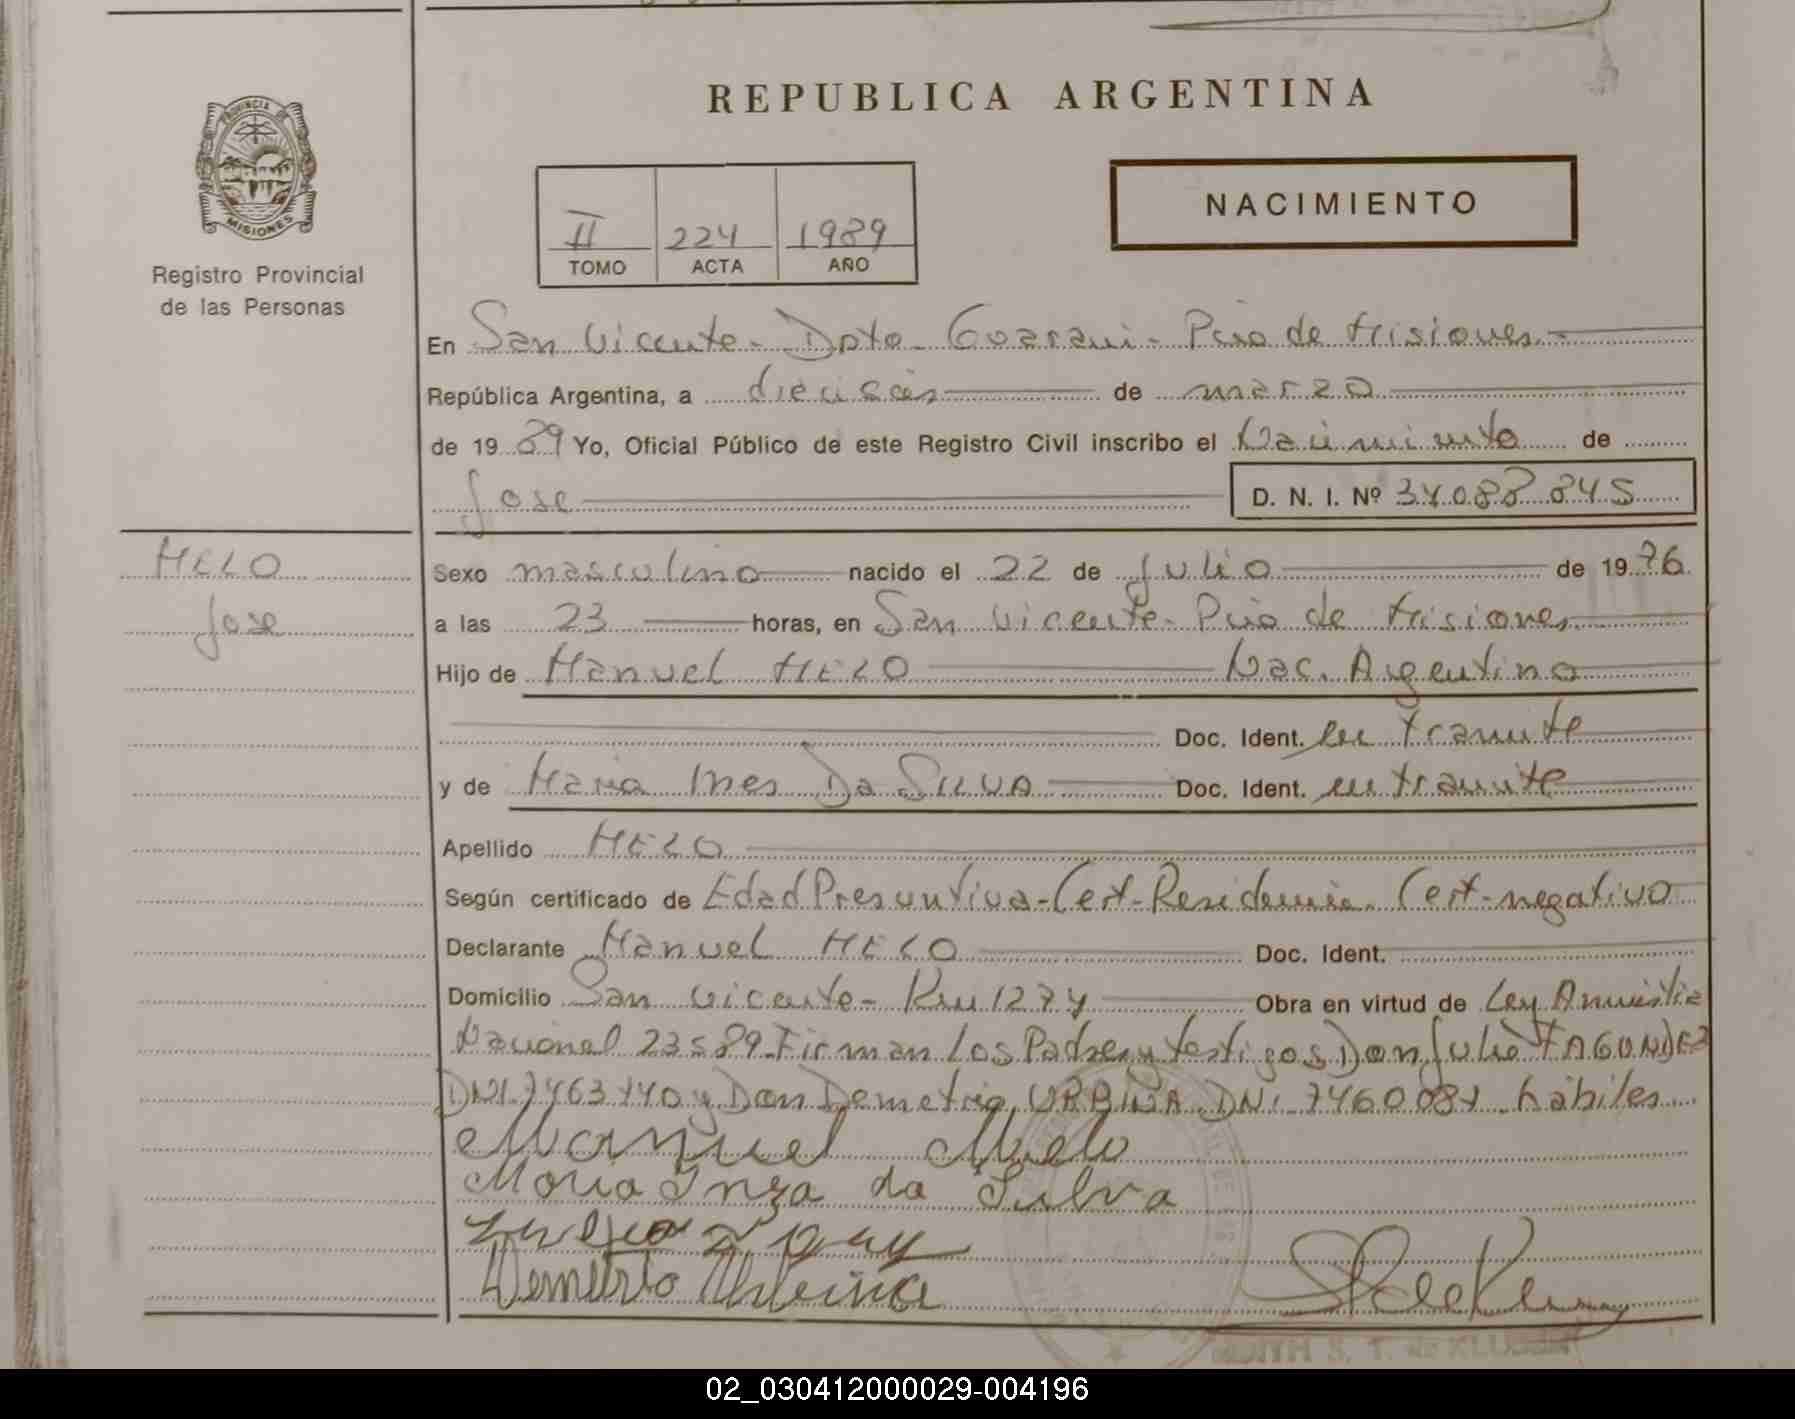 REPUBLICA ARGENTINA
PROVINCIA DE
MISIONES
Registro Provincial
de las Personas
II 224 1989
TOMO ACTA AÑO
NACIMIENTO
En San Vicente - Dpto Guarani - Pcia de Misiones -
República Argentina, a dieciseis de marzo
de 1989 Yo, Oficial Público de este Registro Civil inscribo el Nacimiento de
Jose D. N. I. Nº 34.088.845
MELO
Jose
Sexo masculino nacido el 22 de Julio de 1976
a las 23 horas, en San Vicente - Pcia de Misiones
Hijo de Manuel MELO Nac. Argentino
Doc. Ident. en tramite
y de Maria Ines Da SILVA Doc. Ident. en tramite
Apellido MELO
Según certificado de Edad Presuntiva - Cert - Residencia - Cert - negativo
Declarante Manuel MELO Doc. Ident.
Domicilio San Vicente - Km 1274 Obra en virtud de Ley Amnistia
Nacional 23589 Firman los Padres y testigos Don Julio FAGUNDEZ
DNI. 7463140 y Don Demetrio URBINA DNI 7460081 habiles
Manuel Melo
Maria Inza da Silva
Demetrio
EDITH S. T. de
02_030412000029-004196